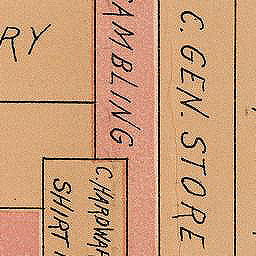 RY
AMBLING
C. GEN. STORE
C. HARDWAR
SHIRT